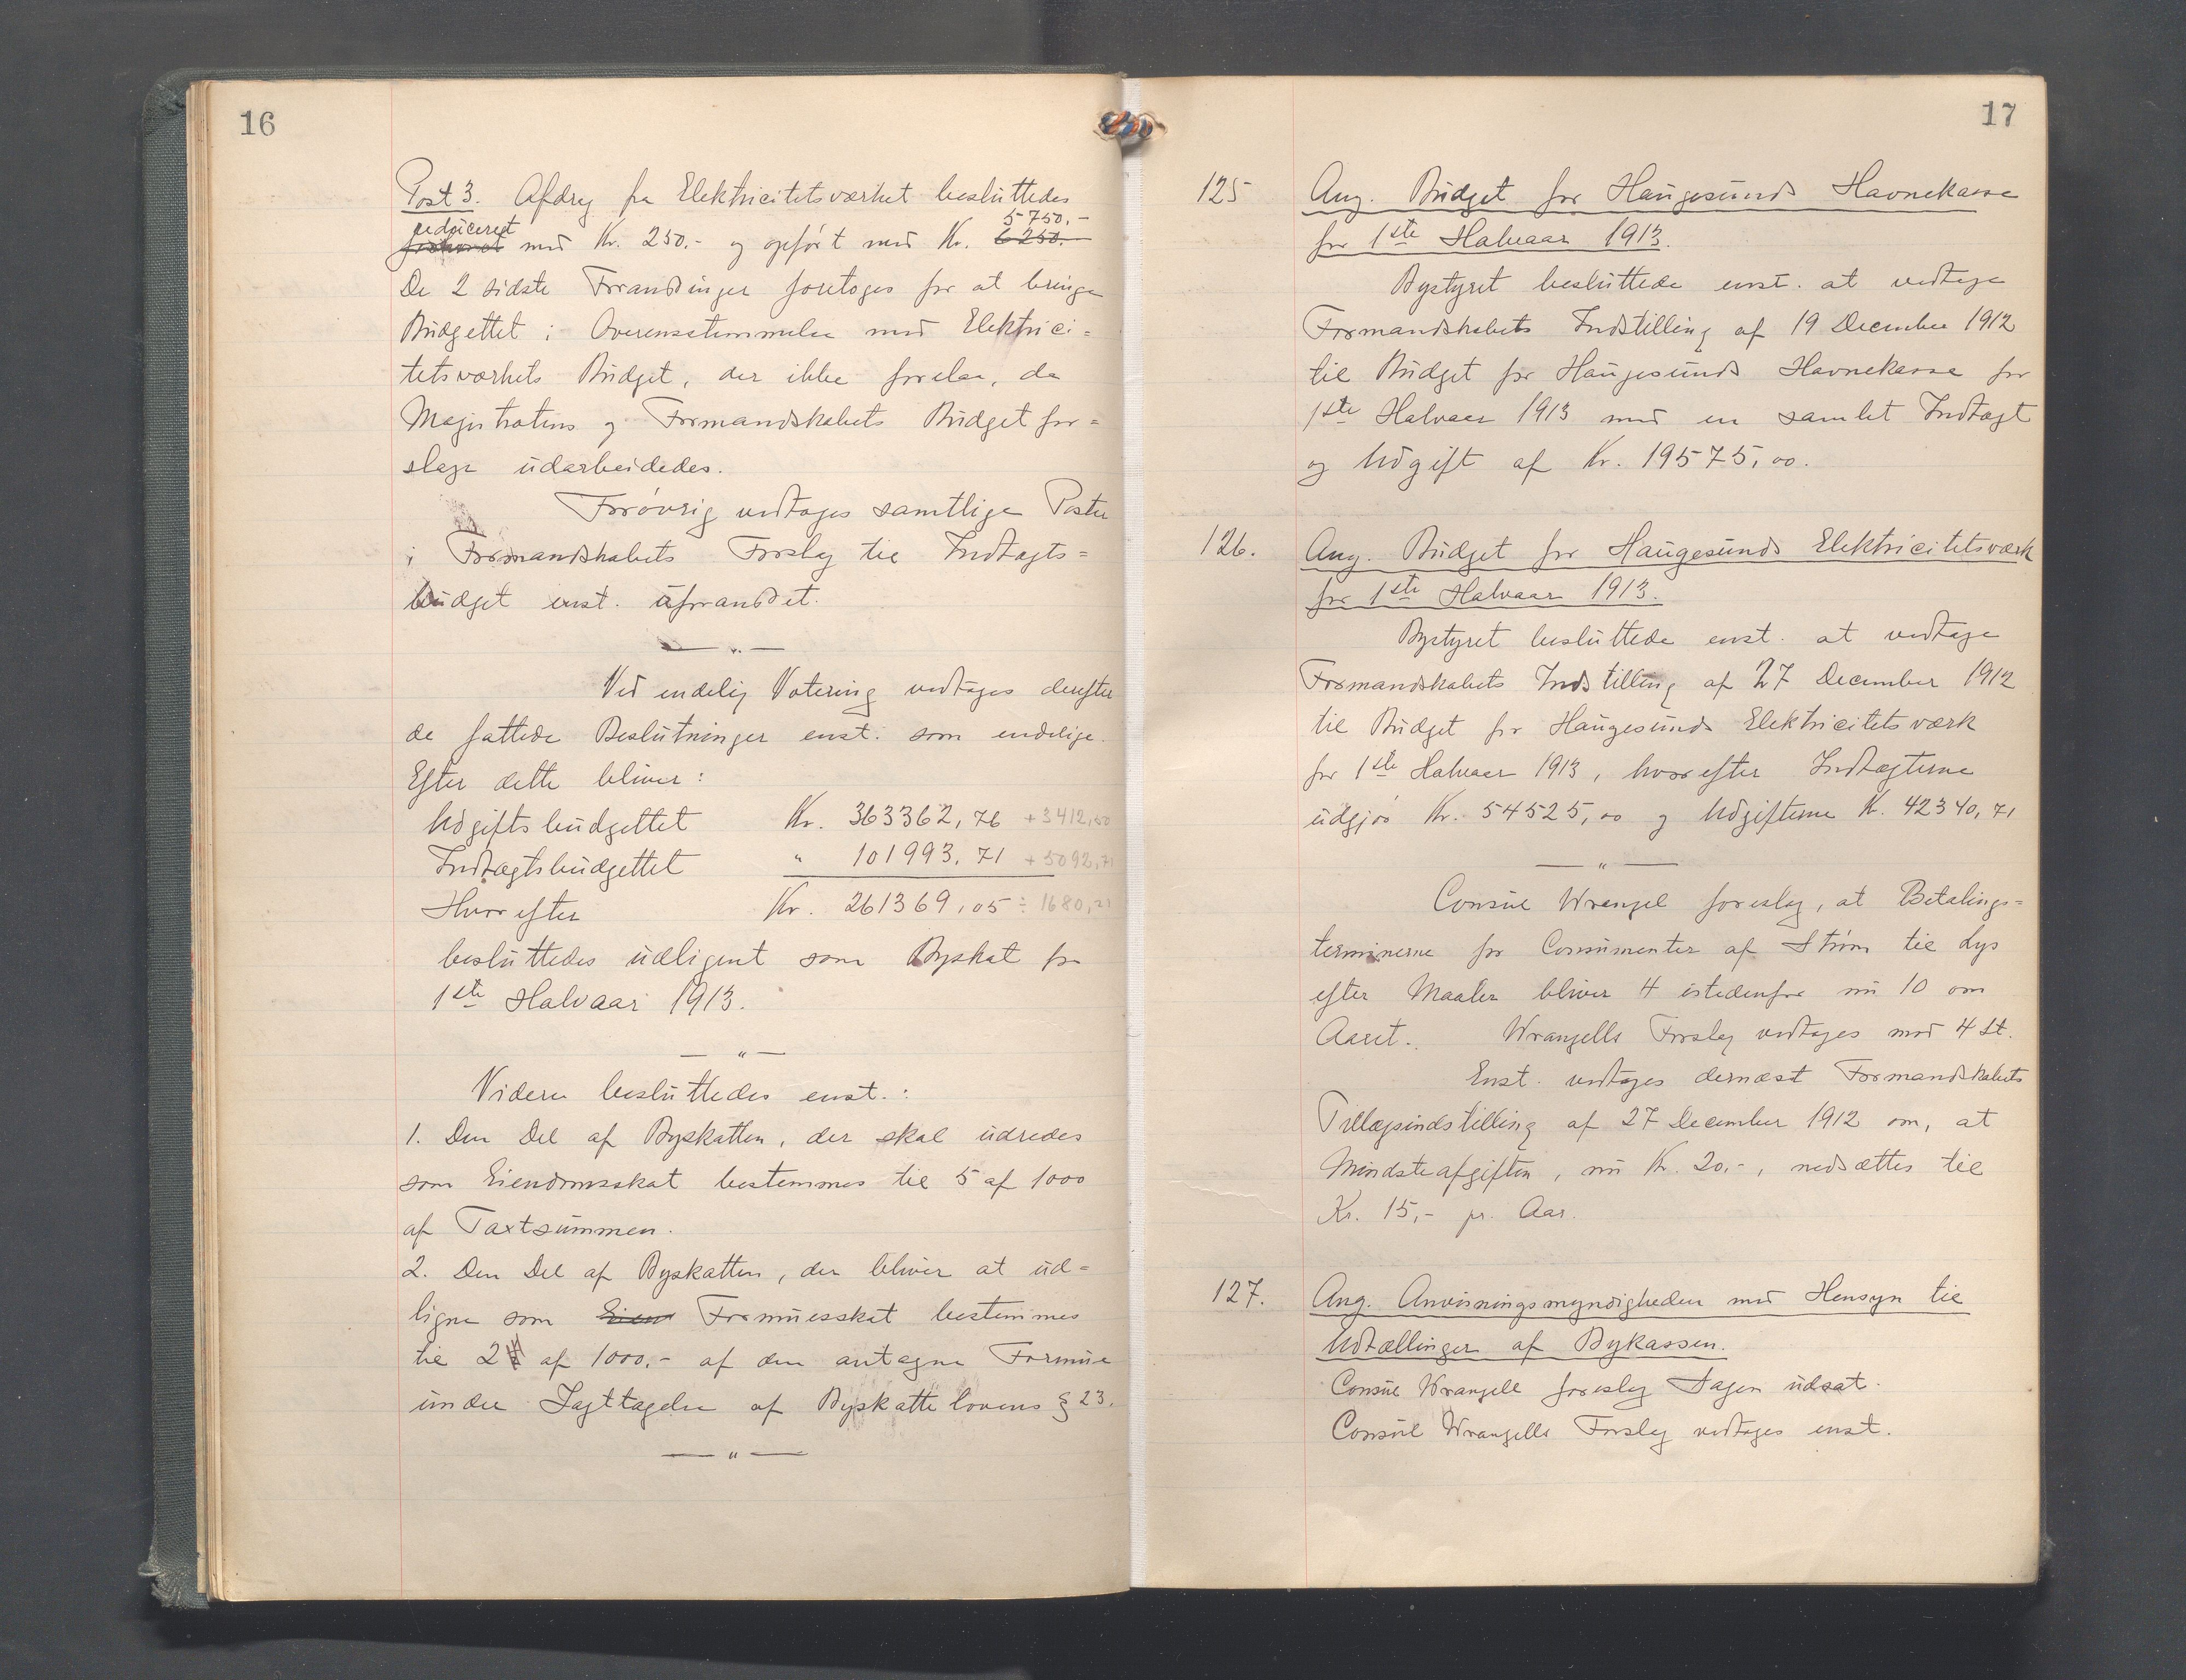 16
Post 3. Afdrag fra Elektricitetsværket besluttedes
reduceret 5750,-
med Kr. 250.- og opført med Kr. 6250.-
De 2 sidste Forandringer foretoges for at bringe
Budgettet i Overensstemmelse med Elektrici=
tetsværkets Budget, der ikke forelaa, da
Magistratens og Formandskabets Budgetfor=
slage udarbeidedes.
Forøvrig vedtoges samtlige Poster
i Formandskabets Forslag til Indtægts=
budget enst. uforandret.
— „ —
Ved endelig Votering vedtoges derefter
de fattede Beslutninger enst. som endelige.
Efter dette bliver:
Udgiftsbudgettet Kr. 363362,76 + 3412,50
Indtægtsbudgettet " 101993.71 + 5092,71
Hvorefter Kr. 261369,05 ÷ 1680,21
besluttedes udlignet som Byskat for
1ste Halvaar 1913.
— „ —
Videre besluttedes enst.:
1. Den Del af Byskatten, der skal udredes
som Eiendomsskat bestemmes til 5 af 1000
af Taxtsummen.
2. Den Del af Byskatten, der bliver at ud=
ligne som Eien Formuesskat bestemmes
til 2 af 1000.- af den antagne Formue
under Iagttagelse af Byskattelovens § 23.
— „ —
17
125 Ang. Budget for Haugesunds Havnekasse
for 1ste Halvaar 1913.
Bystyret besluttede enst. at vedtage
Formandskabets Indstilling af 19 December 1912
til Budget for Haugesunds Havnekasse for
1ste Halvaar 1913 med en samlet Indtægt
og Udgift af Kr. 19575,00.
126. Ang. Budget for Haugesunds Elektricitetsværk
for 1ste Halvaar 1913.
Bystyret besluttede enst. at vedtage
Formandskabets Indstilling af 27 December 1912
til Budget for Haugesunds Elektricitetsværk
for 1ste Halvaar 1913, hvorefter Indtægterne
udgjør Kr. 54525,00 og Udgifterne Kr. 42340,71
— „ —
Consul Wrangel foreslog, at Betalings=
terminerne for Consumenter af Strøm til Lys
efter Maaler bliver 4 istedenfor nu 10 om
Aaret. Wrangells Forslag vedtoges mod 4 St.
Enst. vedtoges dernæst Formandskabets
Tillægsindstilling af 27 December 1912 om, at
Mindsteafgiften, nu Kr. 20,-, nedsættes til
Kr. 15,- pr. Aar.
127. Ang. Anvisningsmyndigheden med Hensyn til
Udtællinger af Bykassen.
Consul Wrangell foreslog Sagen udsat.
Consul Wrangells Forslag vedtoges enst.